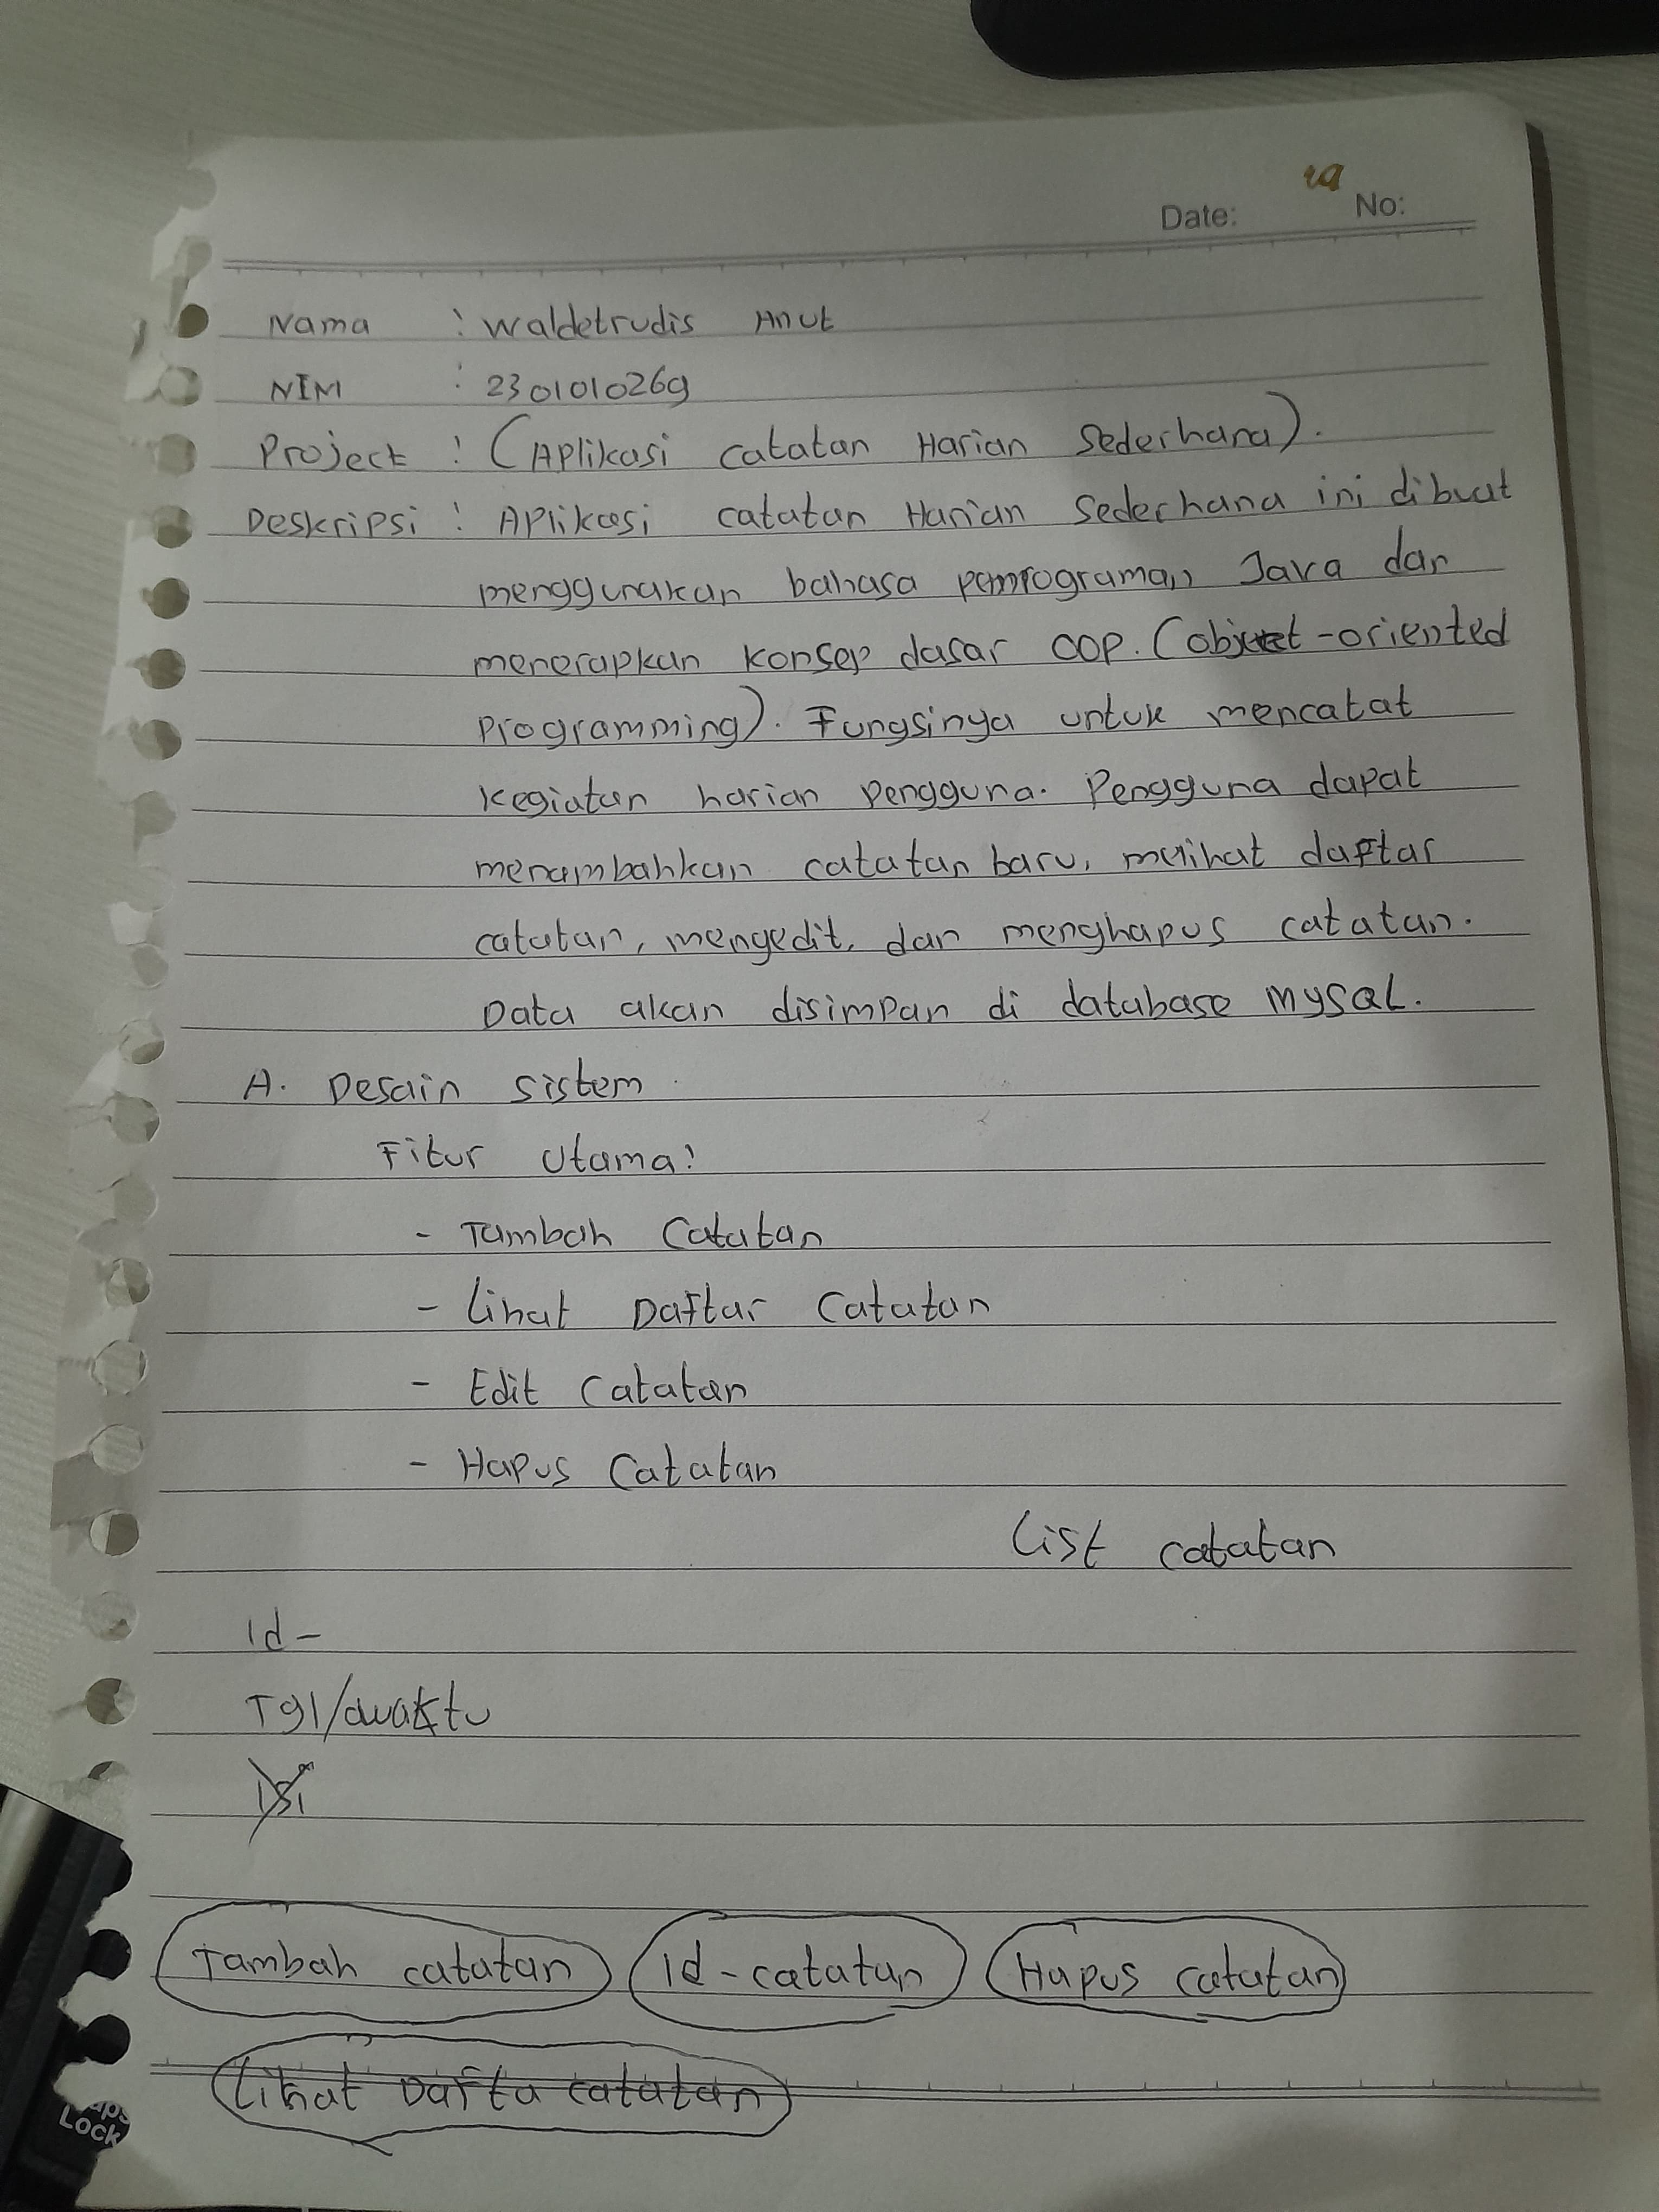 Date: No:
Nama : Waldetrudis Anut
NIM : 2301010269
Project : (Aplikasi catatan Harian Sederhana).
Deskripsi : Aplikasi catatan Harian Sederhana ini dibuat
menggunakan bahasa pemrograman Java dan
menerapkan konsep dasar OOP. (object-oriented
Programming). Fungsinya untuk mencatat
kegiatan harian pengguna. Pengguna dapat
menambahkan catatan baru, melihat daftar
catatan, mengedit, dan menghapus catatan.
Data akan disimpan di database MySQL.
A. Desain sistem
Fitur Utama:
- Tambah Catatan
- Lihat Daftar Catatan
- Edit Catatan
- Hapus Catatan
List catatan
Id -
Tgl/waktu
Isi
Tambah catatan Id-catatan Hapus catatan
Lihat Dafta catatan
Lock